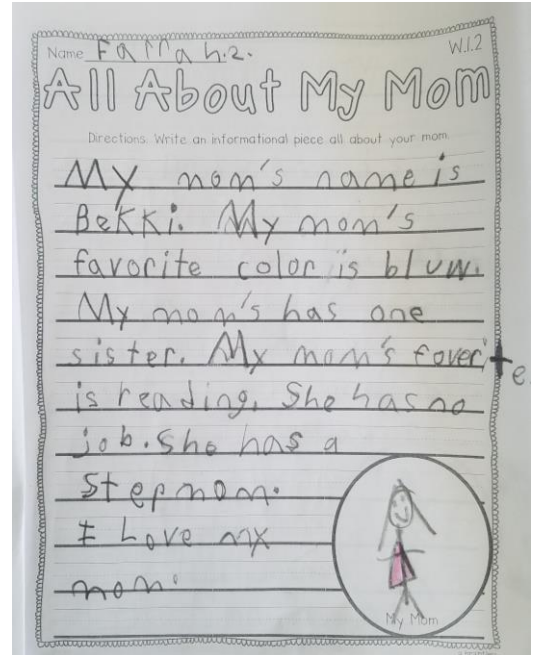 Name Farrah.z.
W.1.2
All About My Mom
Directions: Write an informational piece all about your mom.
My mom's name is
Bekki. My mom's
favorite color is bluw.
My mom's has one
sister. My mom's foverite
is reading. She has no
job. She has a
stepmom.
I Love my
mom.
My Mom